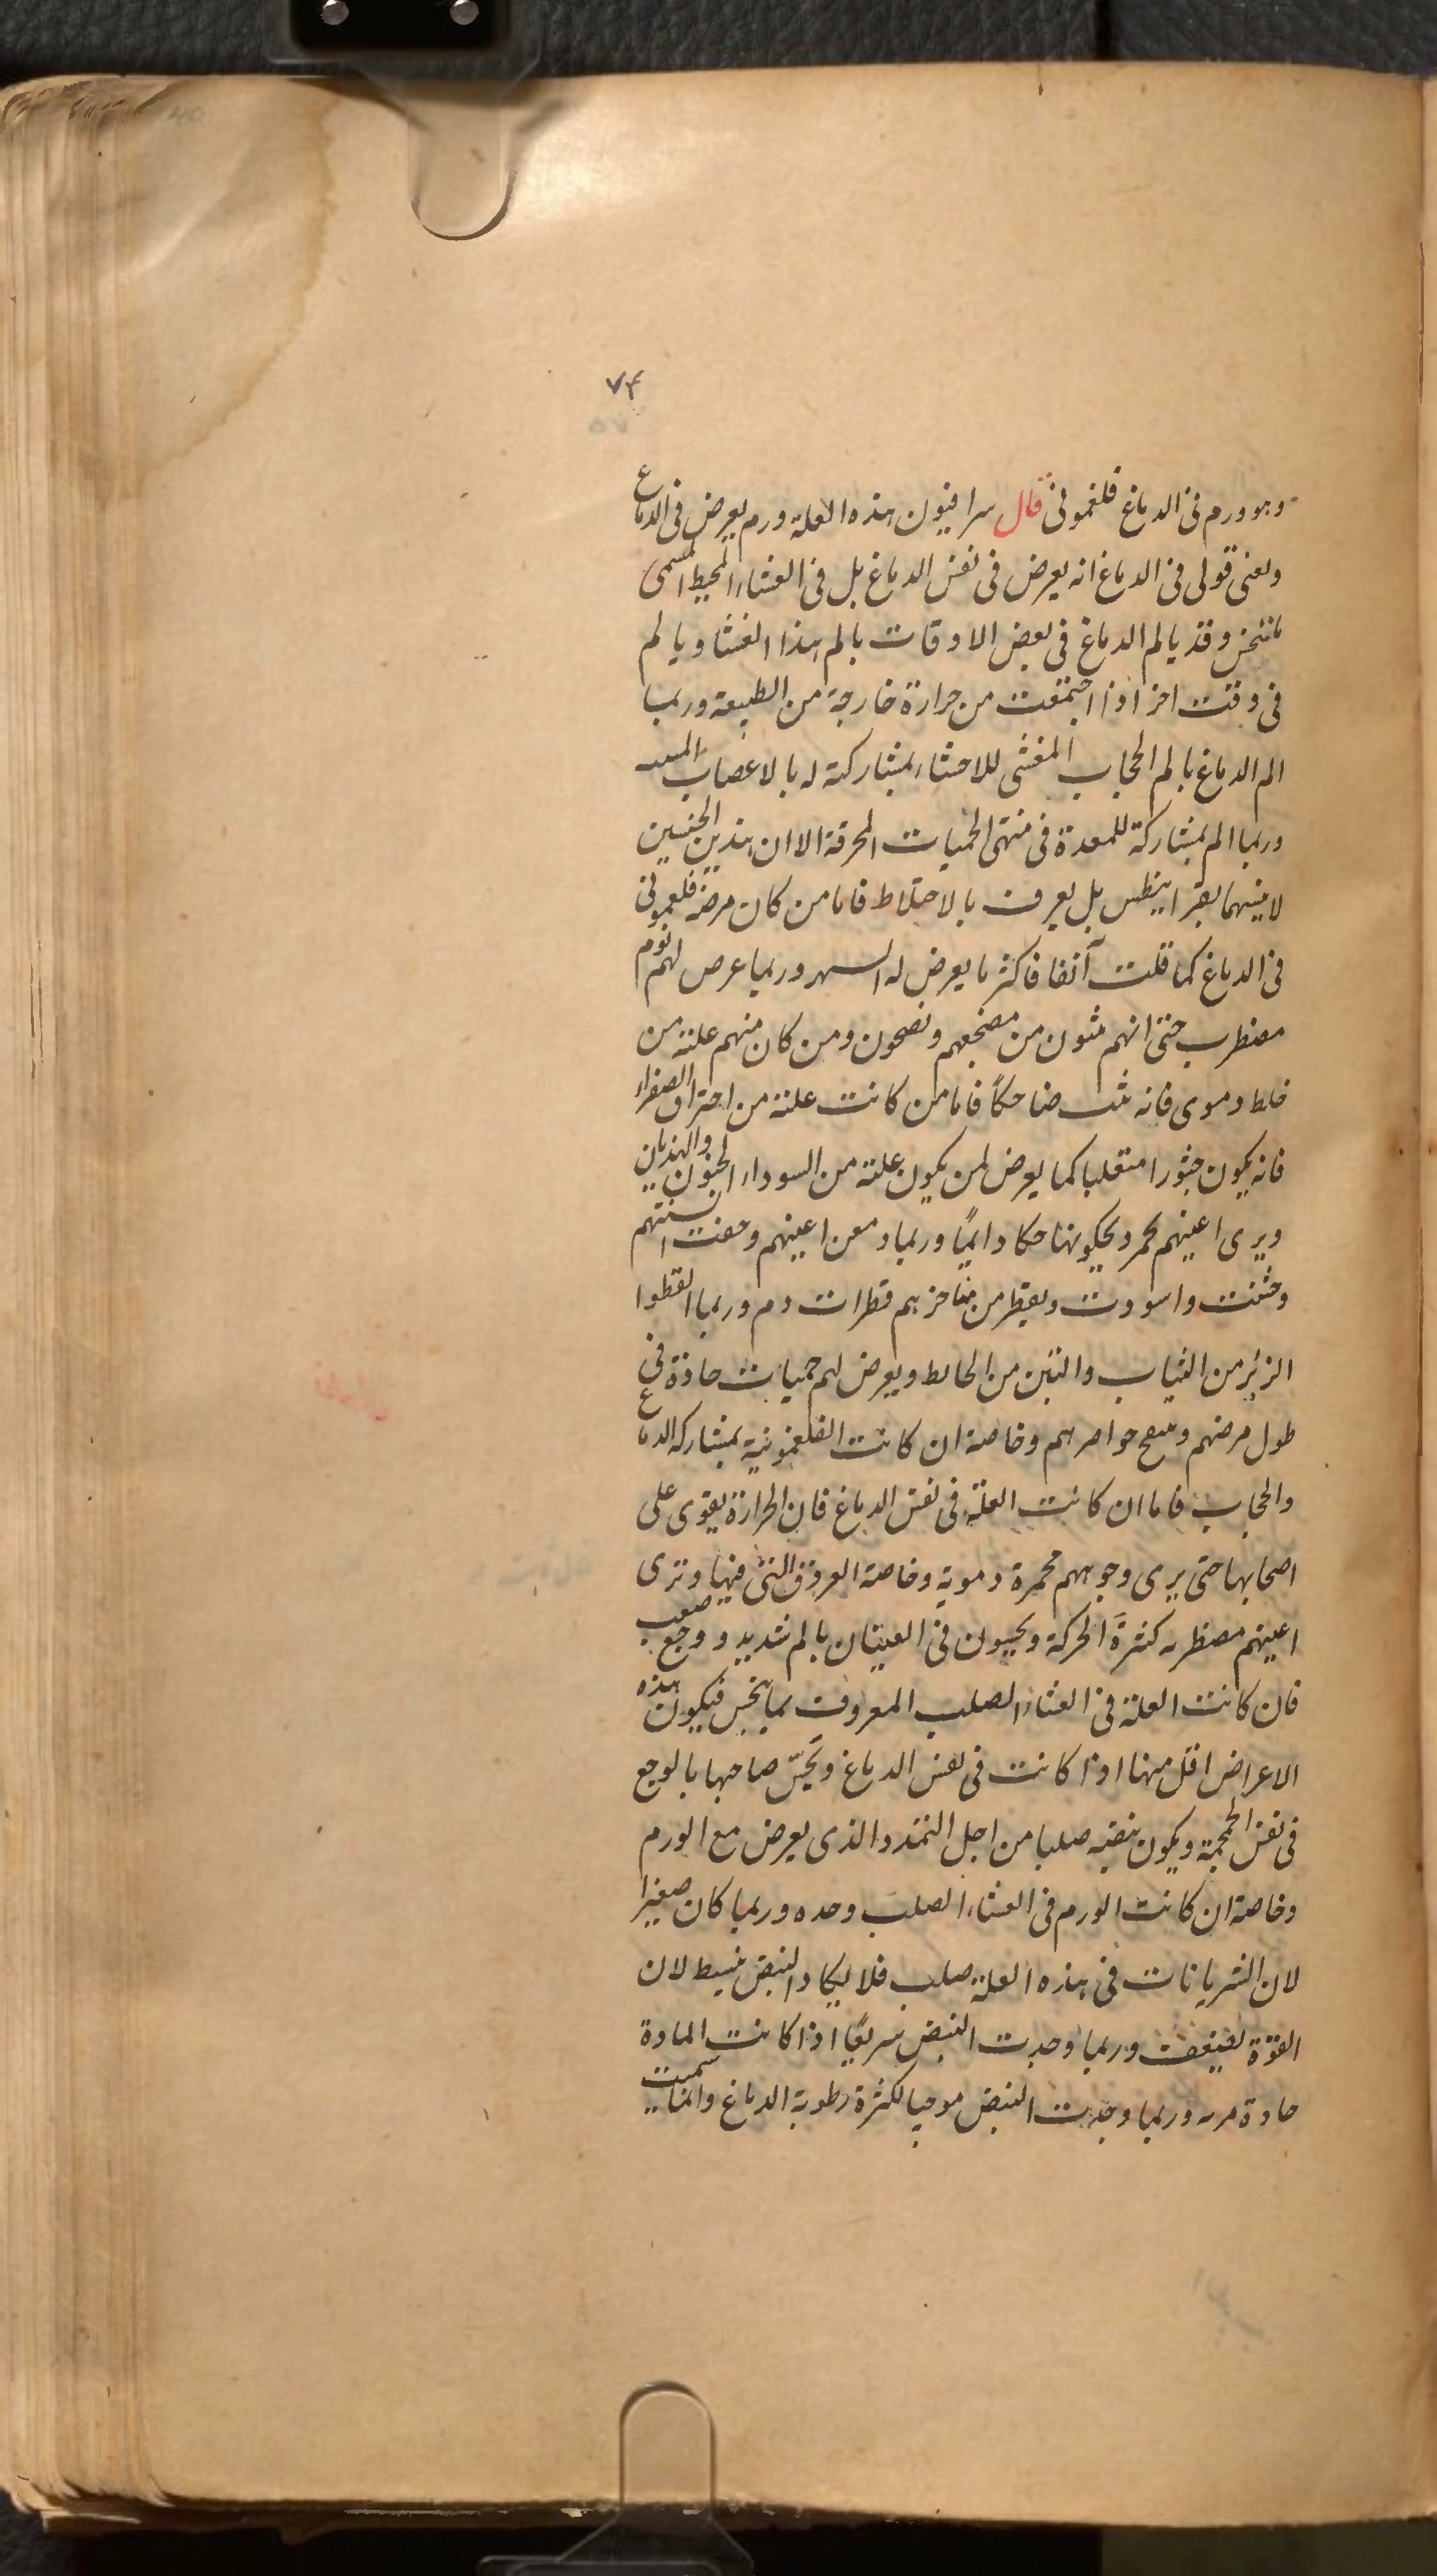 ٧٤
وهو ورم فى الدماغ فلغمونى قال سرافيون هذه العلة ورم يعرض فى الدماغ
ومعنى قولى فى الدماغ انه يعرض فى نفس الدماغ بل فى الغشاء المحيط المسمى
ماننخس وقد يالم الدماغ فى بعض الاوقات بالم هذا الغشا ويالم
فى وقت اخر اذا اجتمعت من حرارة خارجة من الطبيعة وربما
الم الدماغ بالم الحجاب المغشى للاحشاء بمشاركته له بالاعصاب
وربما الم بمشاركة للمعدة فى منتهى الحميات المحرقة الا ان هذين الجنسين
لا يسهما بقرانيطس بل يعرف بالاختلاط فاما من كان مرضه فلغمونى
فى الدماغ كما قلت آنفا فاكثر ما يعرض له السهر وربما عرض لهم نوم
مضطرب حتى انهم يثبون من مضجعهم ويصحون ومن كان منهم علته من
خلط دموى فانه يثب ضاحكاً فاما من كانت علته من احتراق الصفراء
فانه يكون جثورا متقلبا كما يعرض لمن يكون علته من السوداء الجنون والهذيان
ويرى اعينهم تحمر ويحكونها حكا دايمًا وربما دمعن اعينهم وجفت السنتهم
وخشنت واسودت ويقطر من مناخرهم قطرات دم وربما القطوا
الزئبر من الثياب والتبن من الحايط ويعرض لهم حميات حادة فى
طول مرضهم خواصرهم وخاصة ان كانت الفلغمونية بمشاركة الدماغ
والحجاب فاما ان كانت العلة فى نفس الدماغ فان الحرارة يقوى على
اصحابها حتى يرى وجوههم محمرة دموية وخاصة العروق التى فيها وترى
اعينهم مضطربه كثرة الحركة ويحسون فى العينان بالم شديد ووجع صعب
فان كانت العلة فى الغشاء الصلب المعروف بمانيخس فيكون هذه
الاعراض اقل منها اذا كانت فى نفس الدماغ ويحسّ صاحبها بالوجع
فى نفس الجمجمة ويكون نبضه صلبا من اجل التمدد الذى يعرض مع الورم
وخاصة ان كانت الورم فى الغشاء الصلب وحده وربما كان صغيرا
لان الشريانات فى هذه العلة صلب فلا يكاد النبض ينبسط لان
القوة لضيفت وربما وجدت النبض سريعًا اذا كانت المادة
حادة مره وربما وجدت النبض موجيا لكثرة رطوبة الدماغ وانما سميت